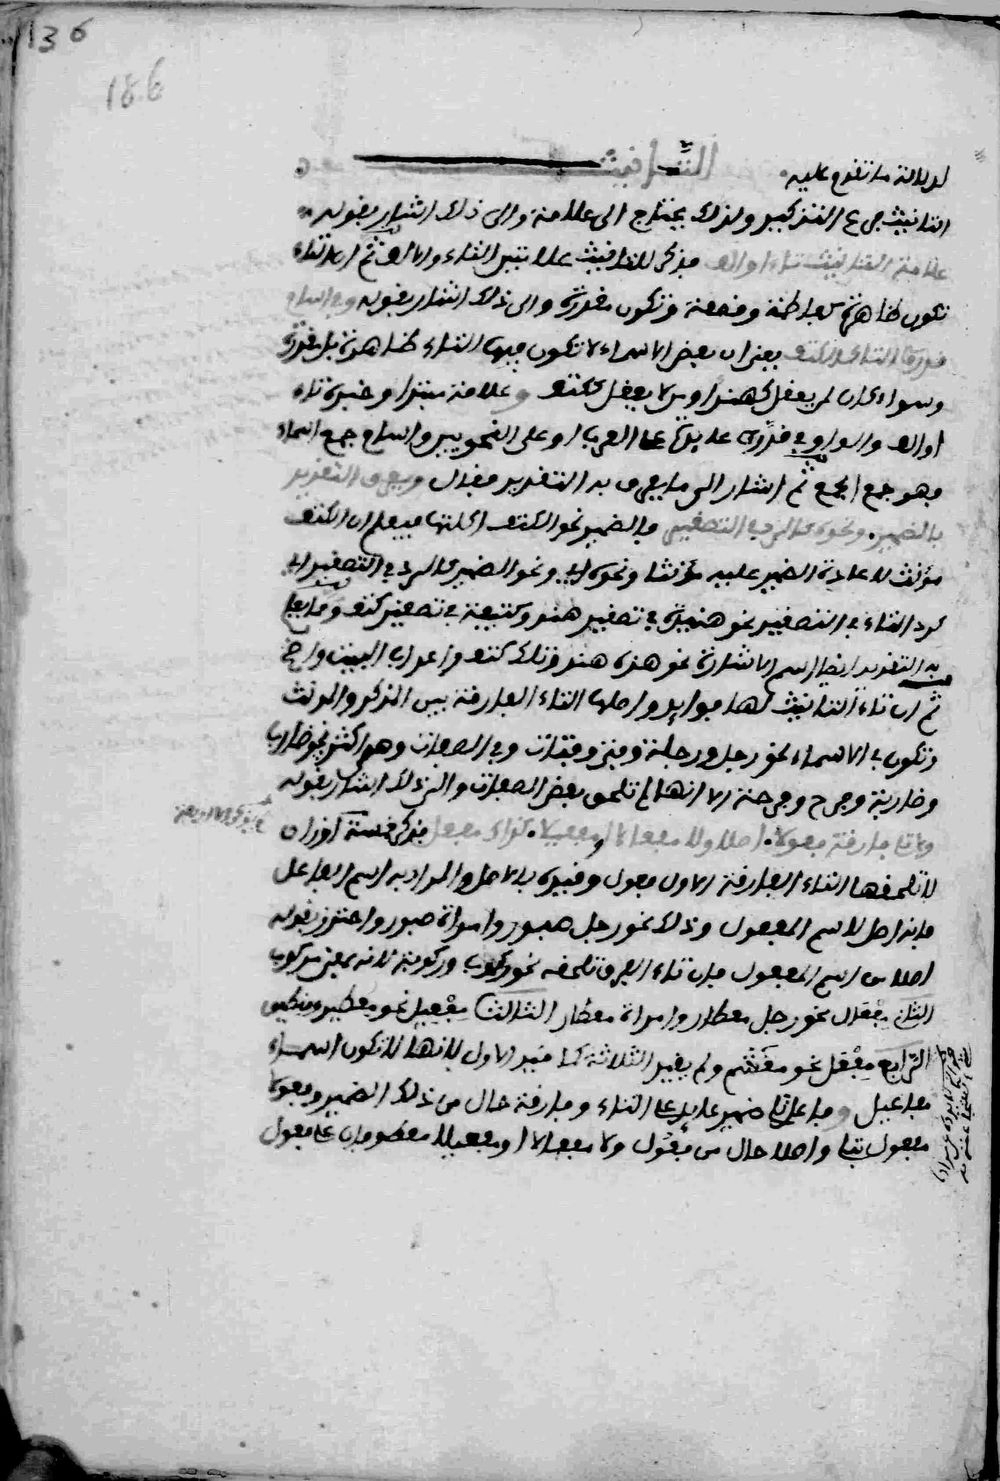 136
186
لدلالة ما تقدم عليه التانيث
التانيث فرع التذكير ولذلك يحتاج الى علامة والى ذلك اشار بقوله
علامة التانيث تاء او الف فذكر للتانيث علامتين التاء والالف ثم ان التاء
تكون ظاهرة كفاطمة وقصعة وتكون مقدرة والى ذلك اشار بقوله وفي اسام
قدروا التا كالكتف يعني ان بعض الاسماء لا تكون فيها التاء ظاهرة بل مقدرة
وسواء كان لمن يعقل كهند او من لا يعقل ككتف وعلامة مبتدا وخبره تاء
او الف والواو في قدروا عايد على العرب او على النحويين واسام جمع اسماء
فهو جمع الجمع ثم اشار الى ما يعرف به التقدير فقال ويعرف التقدير
بالضمير ونحوه كالرد في التصغير فالضمير نحو الكتف اكلتها فيعلم ان الكتف
مؤنث لاعادة الضمير عليه مؤنثا ونحوه اي ونحو الضمير كالرد في التصغير اي
كرد التاء في التصغير نحو هنيدة في تصغير هند وكتيفة في تصغير كتف ومما يعلم
به التقدير ايضا اسم الاشارة نحو هذه هند وتلك كتف واعراب البيت واضح
ثم ان تاء التانيث لها فوايد واصلها التاء الفارقة بين المذكر والمونث
وتكون في الاسماء نحو رجل ورجلة وفتى وفتاة وفي الصفات وهو اكثر نحو ضارب
وضاربة وفرح وفرحة الا انها لم تلحق بعض الصفات والى ذلك اشار بقوله
ولا تلي فارقة فعولا اصلا ولا المفعال والمفعيلا كذاك مفعل فذكر خمسة اوزان
لا تلحقها التاء الفارقة الاول فعول وقيده بالاصل والمراد به اسم الفاعل
فانه اصل لاسم المفعول وذلك نحو رجل صبور وامراة صبور واحترز بقوله
اصلا من اسم المفعول فان تاء الفرق تلحقه نحو ركوب وركوبة لانه بمعنى مركوب
الثاني مفعال نحو رجل معطار وامراة معطار الثالث مفعيل نحو معطير ومسكين
الرابع مفعل نحو مغشم ولم يقيد الثلاثة كما قيد الاول لانها لا تكون اسماء
مفاعيل وفاعل تلي ضمير عايد على التاء وفارقة حال من ذلك الضمير وفعولا
مفعول بتلي واصلا حال من فعول ولا المفعال او المفعيلا معطوفان على فعول